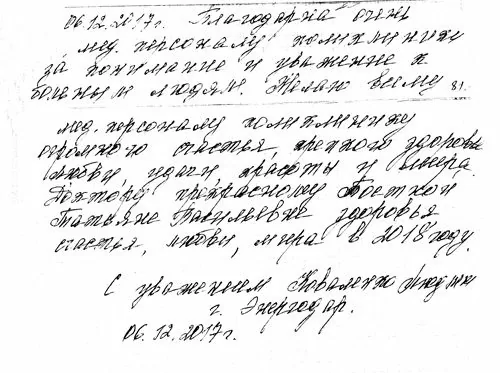 06.12.2017г. Благодарна очень
мед. персоналу поликлиники
за понимание и уважение к
больным людям. Желаю всему
81.
мед. персоналу поликлиники
огромного счастья, крепкого здоровья
любви удачи, красоты и мира,
Доктору прекрасному
Татьяне здоровья
счастья, любви, мира в 2018 году.
С уважением Коваленко
г. Энергодар.
06.12.2017г.